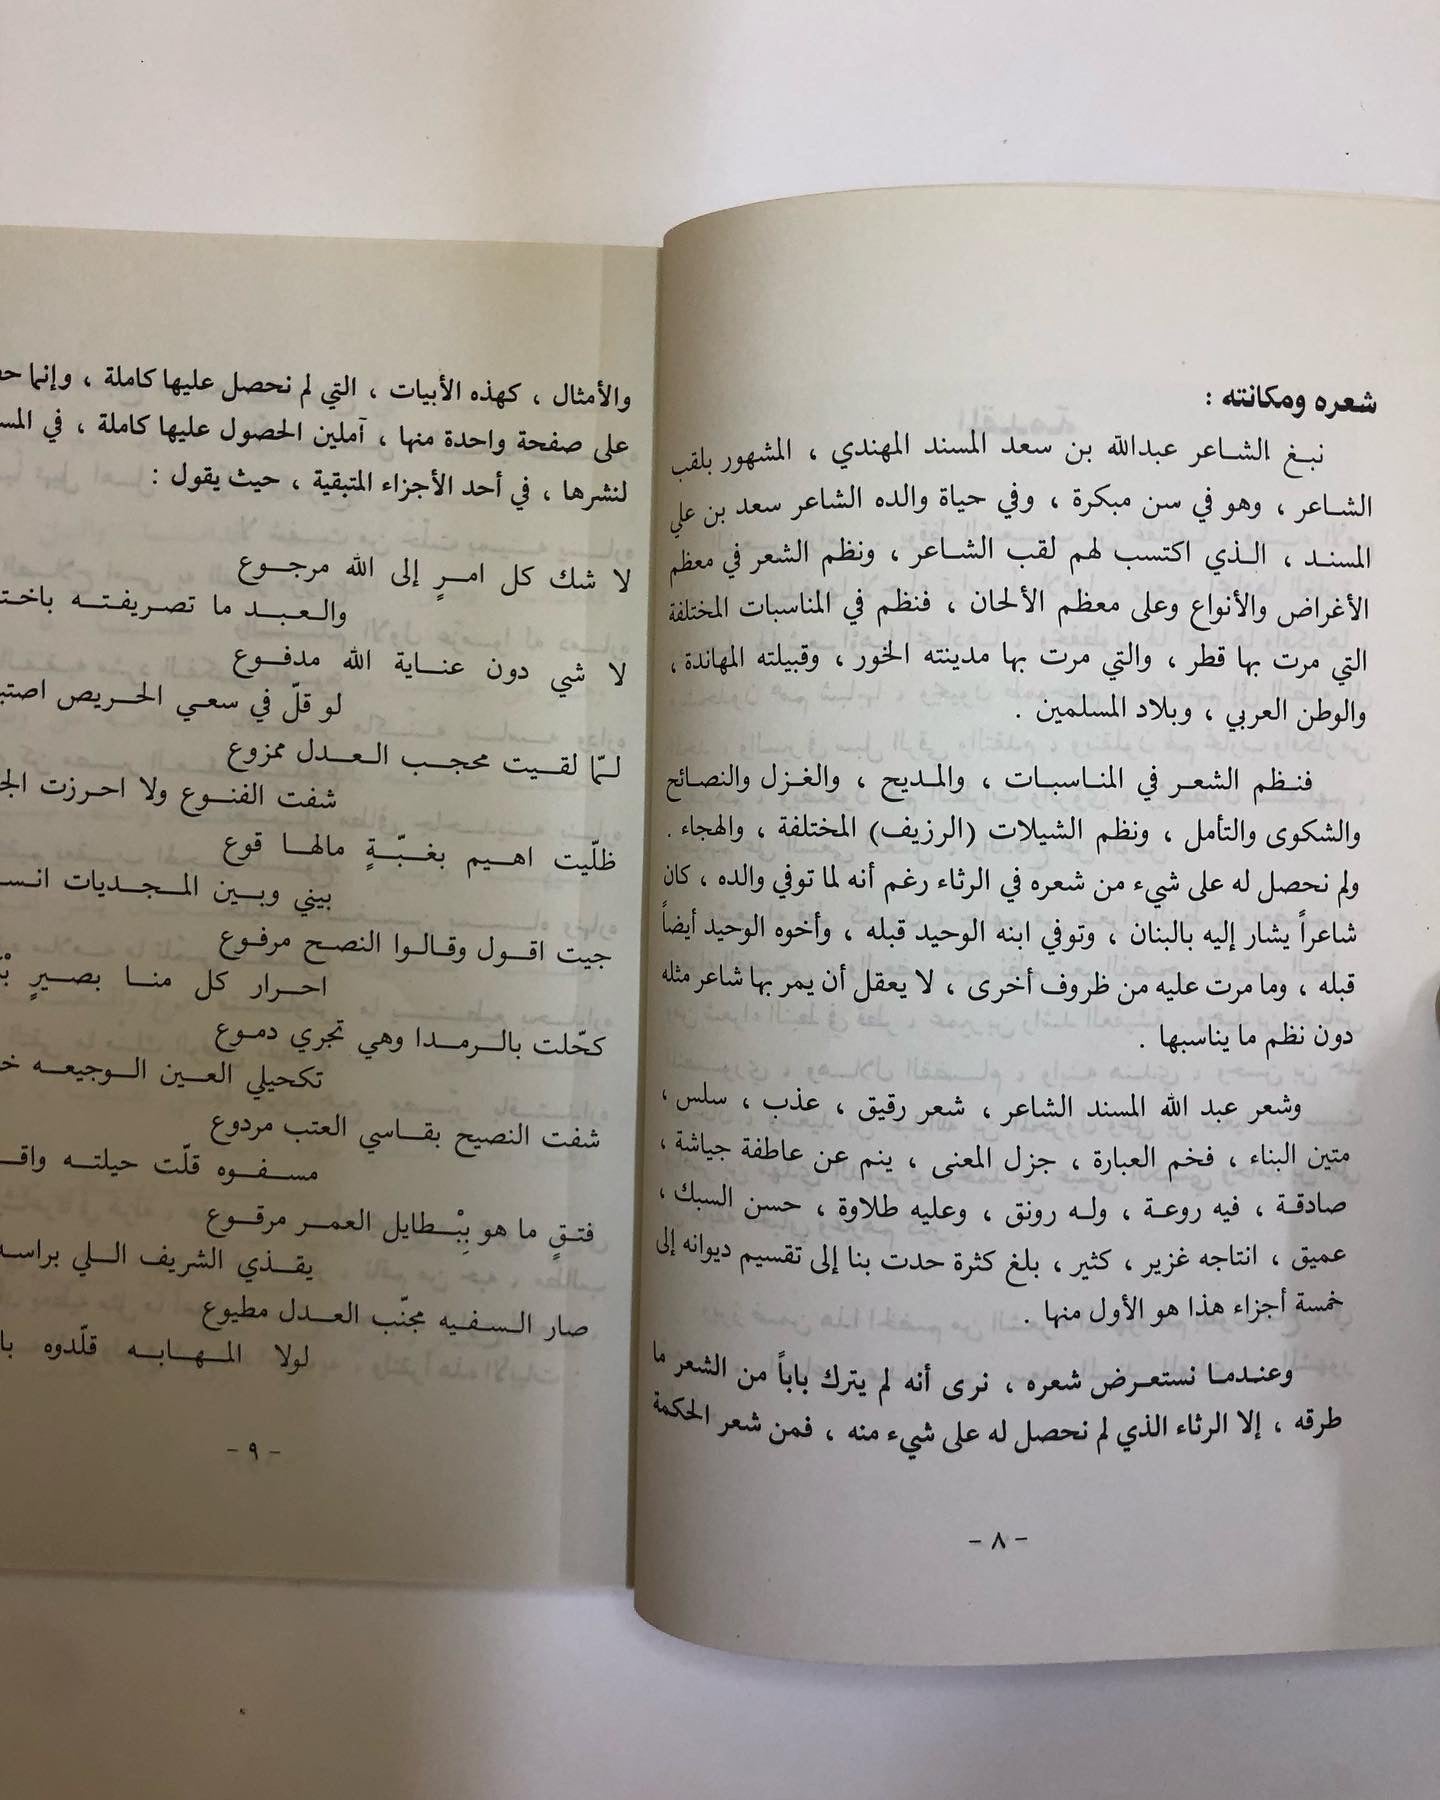 شعره ومكانته :
نبغ الشاعر عبدالله بن سعد المسند المهندي ، المشهور بلقب
الشاعر ، وهو في سن مبكرة ، وفي حياة والده الشاعر سعد بن علي
المسند ، الذي اكتسب لهم لقب الشاعر ، ونظم الشعر في معظم
الأغراض والأنواع وعلى معظم الألحان ، فنظم في المناسبات المختلفة
التي مرت بها قطر ، والتي مرت بها مدينته الخور ، وقبيلته المهاندة ،
والوطن العربي ، وبلاد المسلمين .
فنظم الشعر في المناسبات ، والمديح ، والغزل والنصائح
والشكوى والتأمل ، ونظم الشيلات (الرزيف) المختلفة ، والهجاء .
ولم نحصل له على شيء من شعره في الرثاء رغم أنه لما توفي والده ، كان
شاعراً يشار إليه بالبنان ، وتوفي ابنه الوحيد قبله ، وأخوه الوحيد أيضاً
قبله ، وما مرت عليه من ظروف أخرى ، لا يعقل أن يمر بها شاعر مثله
دون نظم ما يناسبها .
وشعر عبد الله المسند الشاعر ، شعر رقيق ، عذب ، سلس ،
متين البناء ، فخم العبارة ، جزل المعنى ، ينم عن عاطفة جياشة ،
صادقة ، فيه روعة ، وله رونق ، وعليه طلاوة ، حسن السبك ،
عميق ، انتاجه غزير ، كثير ، بلغ كثرة حدت بنا إلى تقسيم ديوانه إلى
خمسة أجزاء هذا هو الأول منها .
وعندما نستعرض شعره ، نرى أنه لم يترك باباً من الشعر ما
طرقه ، إلا الرثاء الذي لم نحصل له على شيء منه ، فمن شعر الحكمة
- ٨ -
والأمثال ، كهذه الأبيات ، التي لم نحصل عليها كاملة ، وإنما
على صفحة واحدة منها ، آملين الحصول عليها كاملة ، في
لنشرها ، في أحد الأجزاء المتبقية ، حيث يقول :
لا شك كل امرٍ إلى الله مرجوع
والعبد ما تصريفته
لا شي دون عناية الله مدفوع
لو قلّ في سعي الحريص
لمّا لقيت محجب العدل ممزوع
شفت القنوع ولا احرزت
ظلّيت اهيم بغبّةٍ مالها قوع
بيني وبين المجديات
جيت اقول وقالوا النصح مرفوع
احرار كل منا بصيرٍ
كحّلت بالرمدا وهي تجري دموع
تكحيلي العين الوجيعه
شفت النصيح بقاسي العتب مردوع
مسفوه قلّت حيلته
فتقٍ ما هو بِبْطايل العمر مرقوع
يقذي الشريف اللي
صار السفيه مجنّب العدل مطيوع
لولا المهابه قلّدوه
- ٩ -